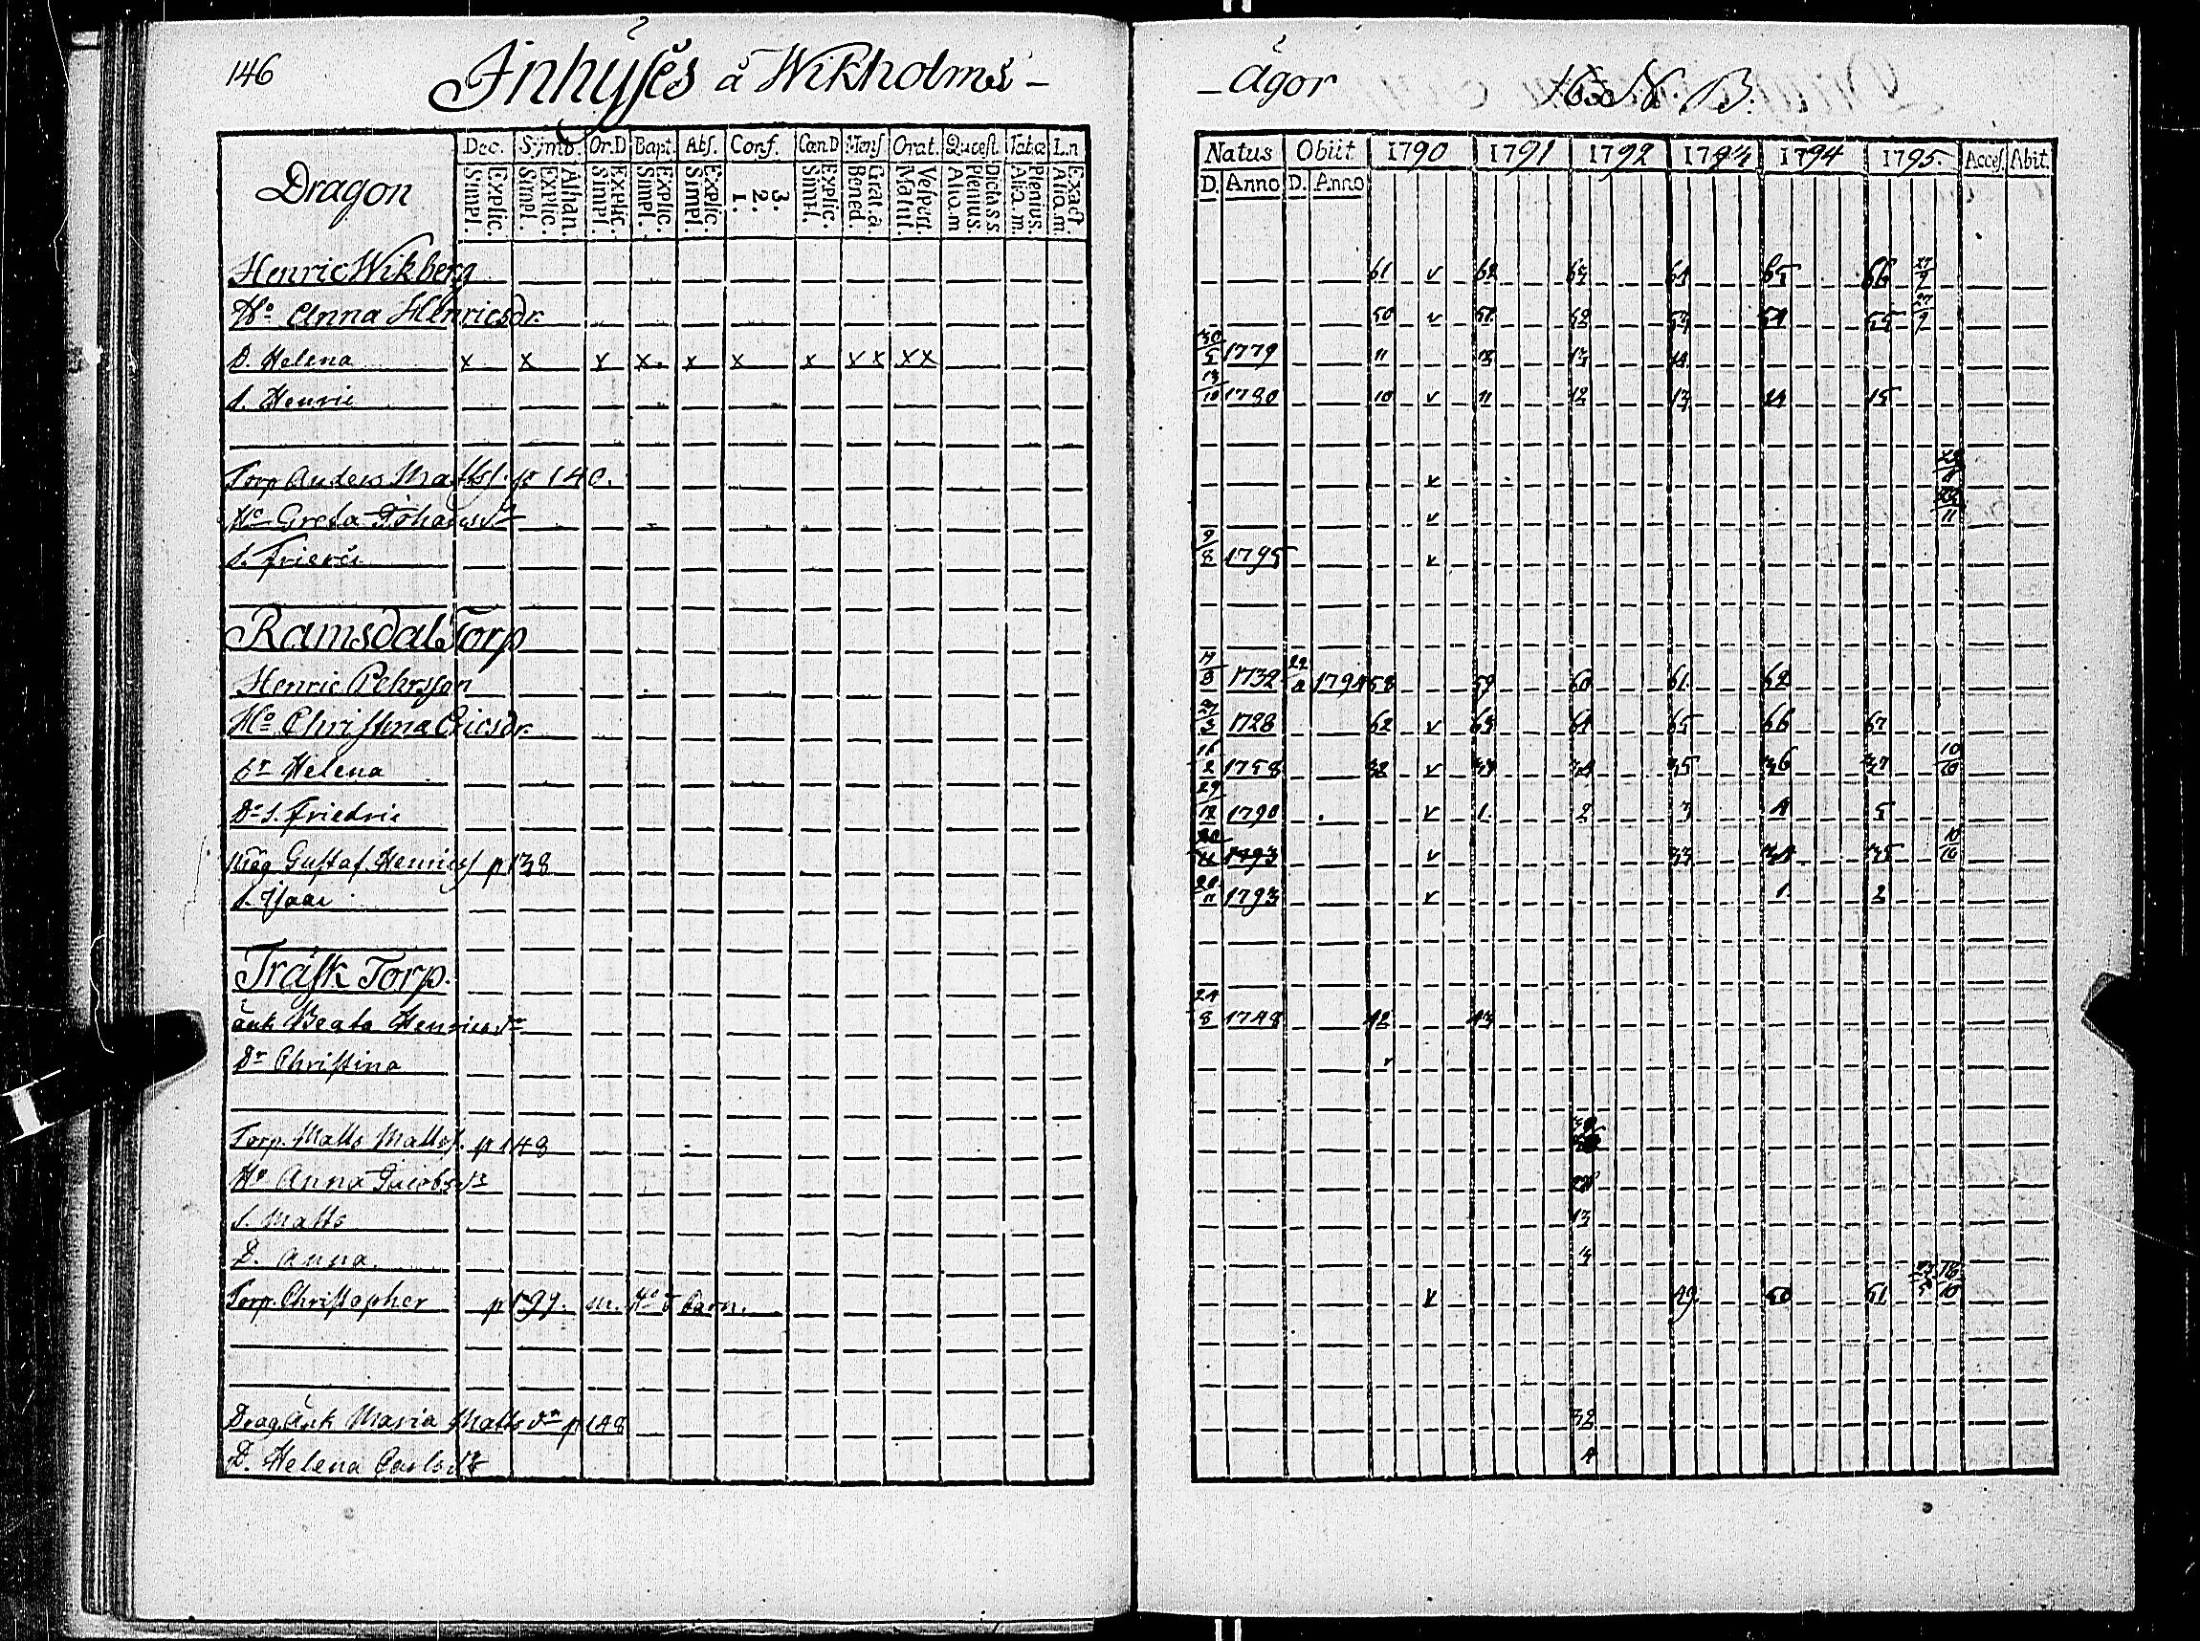 146 Inhyses å Wikholms - - Ägor N. B.
Dragon Dec. Symb. Or.D Bapt. Abs. Conf. CœnD Mens Orat. Quæst Tabæ L.n Natus Obiit 1790 1791 1792 1793 1794 1795. Acces. Abit.
Explic. Simpl. Athan. Explic. Simpl. Explic. Simpl. Explic. Simpl. Explic. Simpl. 3. 2. 1. Explic. Simpl. Grat. a. Bened. Vespert. Matut. Dicta s.s. Plenius. Aliq.m Plenius. Aliq.m. Exact. Aliq.m. D. Anno D. Anno
Henric Wikberg 61 v 62 63 64 65 66 27/9
Ho Anna Henricsdr. 50 v 51 52 53 54 55 27/9
D. Helena x x x x x x x x x x x 30/5 1779 11 12 13 14
S. Henric 13/10 1780 10 v 11 12 13 14 15
Torp Anders Mattss. p 140. v
Ho Greta Johansdr v 11
S. Friedric 9/8 1795 v
Ramsdal Torp
Henric Pehrsson 1732 22 1794 58 59 60 61 62
Ho Christina Ericsdr. 27/3 1728 62 v 63 64 65 66 67
Dr Helena 16/2 1758 32 v 33 34 35 36 37 10/10
Dr S. Friedric 29/12 1790 v 1. 2 3 4 5
Måg Gustaf Henricss p 138 1793 v 33 34 35 10/10
S. Isaac 20/11 1793 v 1. 2
Träsk Torp.
änk Beata Henricsdr 24/8 1748 42 43
Dr Christina v
Torp. Matts Mattss. p 148
Ho Anna Jacobsdr
S. Matts 13
D. Anna 3
Torp. Christopher p 199. m. Ho o Barn. v 49 50 51
Drag. Änk Maria Mattsdr p 148 32
D. Helena Carlsdr 4